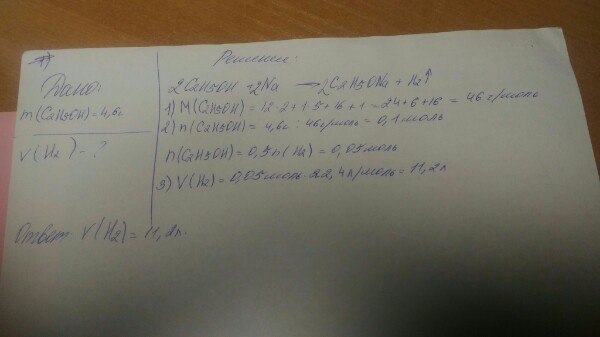 Решение:
Дано:
m(C2H5OH)=4,6г
V(H2)-?
2C2H5OH+2Na → 2C2H5ONa+H2↑
1) M(C2H5OH)=12·2+1·5+16+1=24+6+16=46г/моль
2) n(C2H5OH)=4,6г:46г/моль=0,1моль
n(C2H5OH)=0,5n(H2)=0,05моль
3) V(H2)=0,05моль·22,4л/моль=11,2л
Ответ: V(H2)=11,2л.